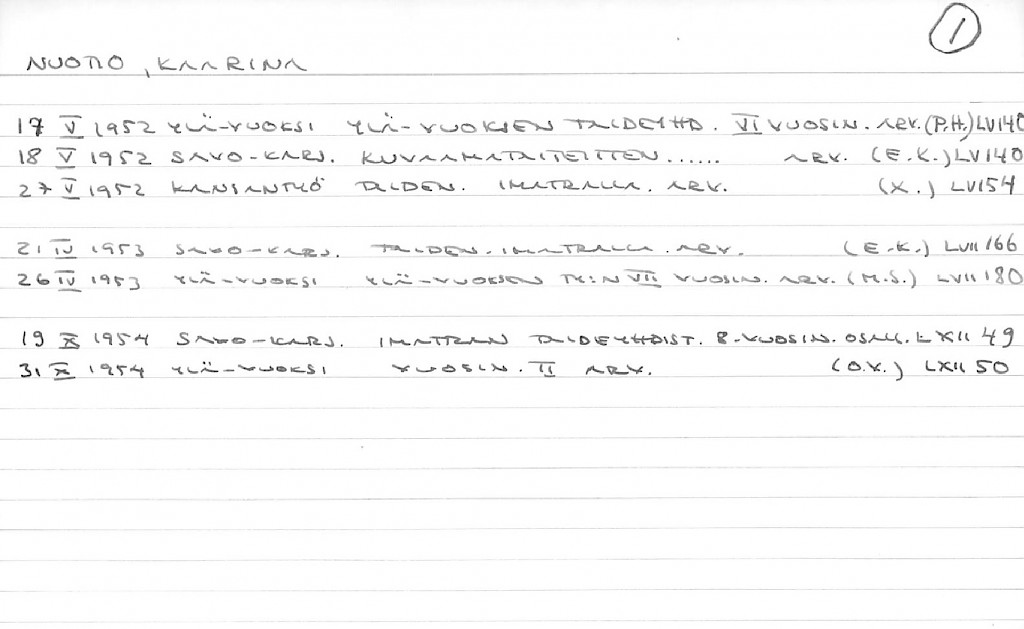 1
NUOTIO, KAARINA
17 V 1952 YLÄ-VUOKSI YLÄ-VUOKSEN TAIDEYHD. VI VUOSIN. ARV. (P.H.) LV 140
18 V 1952 SAVO-KARJ. KUVAAMATAITEITTEN...... ARV. (E.K.) LV 140
27 V 1952 KANSANTYÖ TAIDEN. IMATRALLA. ARV. (X.) LV 154
21 IV 1953 SAVO-KARJ. TAIDEN. IMATRALLA. ARV. (E.K.) LVII 166
26 IV 1953 YLÄ-VUOKSI YLÄ-VUOKSEN TY:N VII VUOSIN. ARV. (M.S.) LVII 180
19 X 1954 SAVO-KARJ. IMATRAN TAIDEYHDIST. 8-VUOSIN. OSALL. LXII 49
31 X 1954 YLÄ-VUOKSI VUOSIN. II ARV. (O.V.) LXII 50